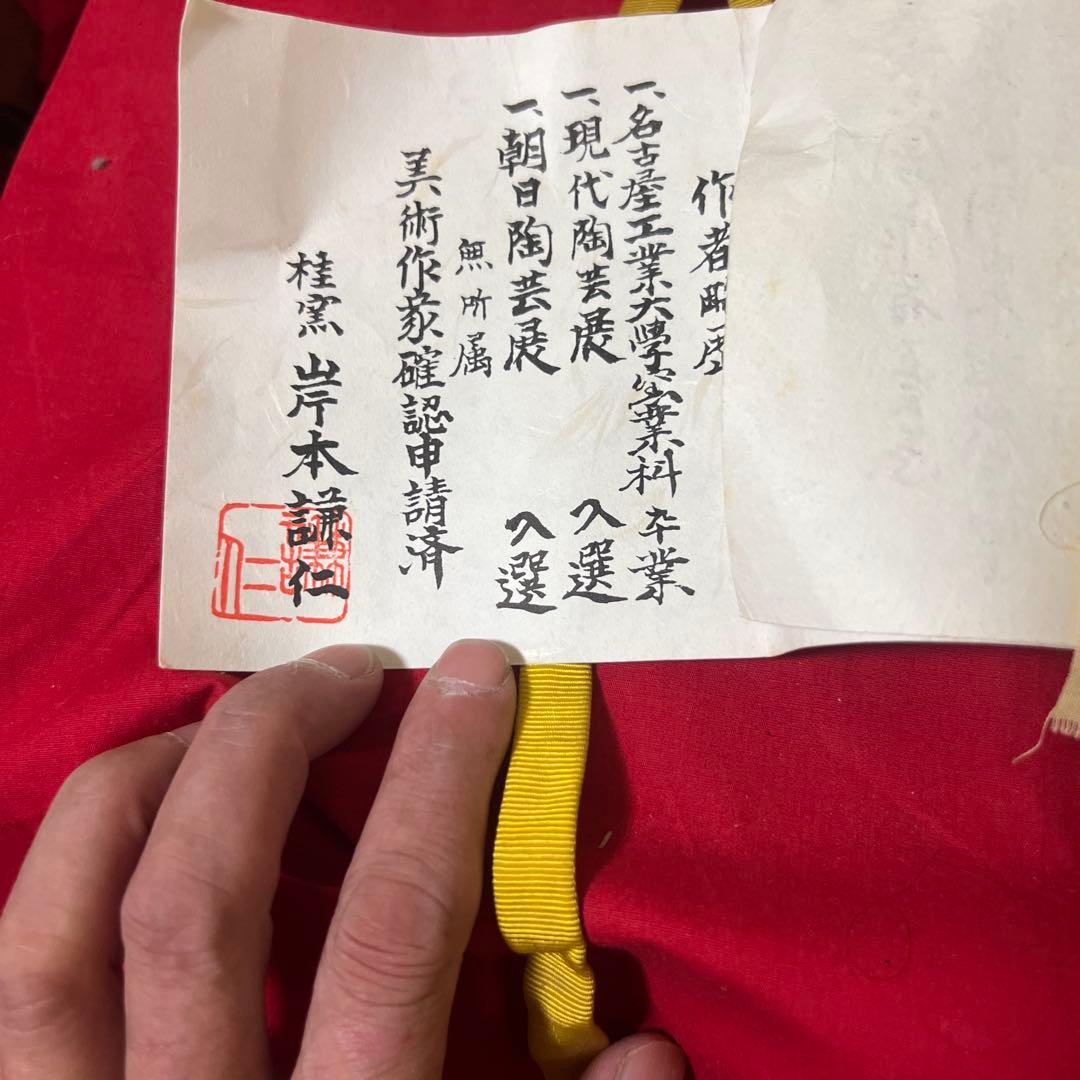 作者略歴
一、名古屋工業大學窯業科 卒業
一、現代陶芸展 入選
一、朝日陶芸展 入選
無所属
美術作家確認申請済
桂窯 岸本謙仁